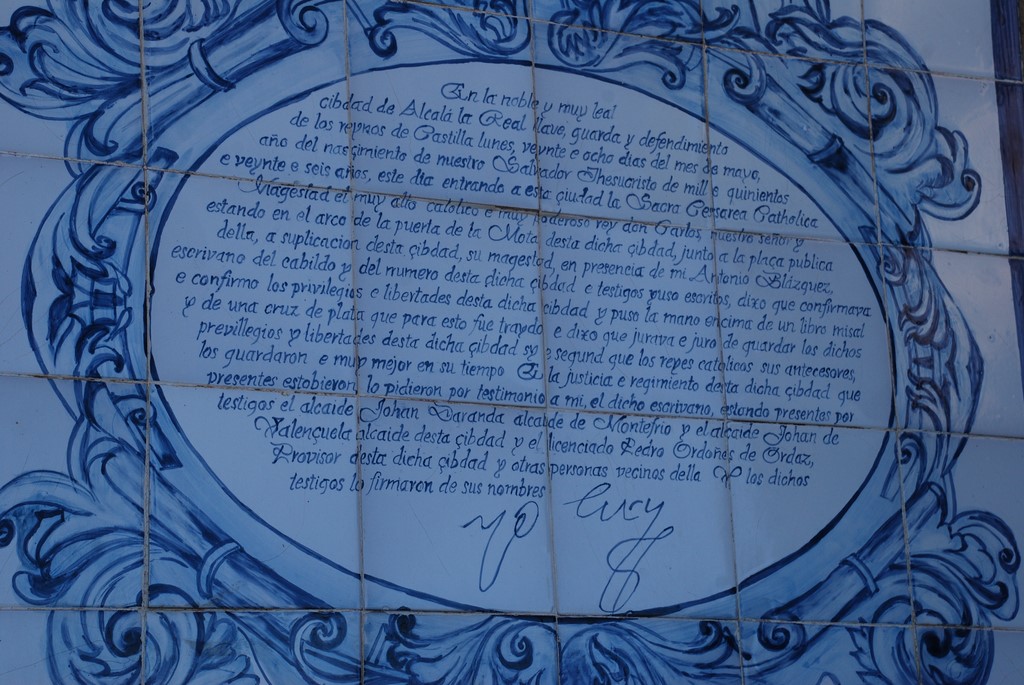 En la noble y muy leal
çibdad de Alcalá la Real llave, guarda y defendimiento
de los reynos de Castilla lunes, veynte e ocho dias del mes de mayo,
año del nasçimiento de nuestro Salvador Jhesucristo de mill e quinientos
e veynte e seis años, este dia entrando a esta çiudad la Sacra Cessarea Catholica
Magestad el muy alto catolico e muy poderoso rey don Carlos, nuestro señor y
estando en el arco de la puerta de la Mota desta dicha çibdad, junto a la plaça publica
della, a suplicacion desta çibdad, su magestad, en presencia de mi Antonio Blázquez,
escrivano del cabildo y del numero desta dicha çibdad e testigos yuso escritos, dixo que confirmava
e confirmo los privilegios e libertades desta dicha çibdad y puso la mano encima de un libro misal
y de una cruz de plata que para esto fue traydo e dixo que jurava e juro de guardar los dichos
previllegios y libertades desta dicha çibdad sy e segund que los reyes catolicos sus antecesores,
los guardaron e muy mejor en su tiempo la justicia e regimiento desta dicha çibdad que
presentes estobieron lo pidieron por testimonio a mi, el dicho escrivano, estando presentes por
testigos el alcaide Johan Daranda alcaide de Montefrio y el alcaide Johan de
Valençuela alcaide desta çibdad y el licenciado Pedro Ordoñes de Ordaz,
Provisor desta dicha çibdad y otras personas vecinos della Y los dichos
testigos lo firmaron de sus nombres